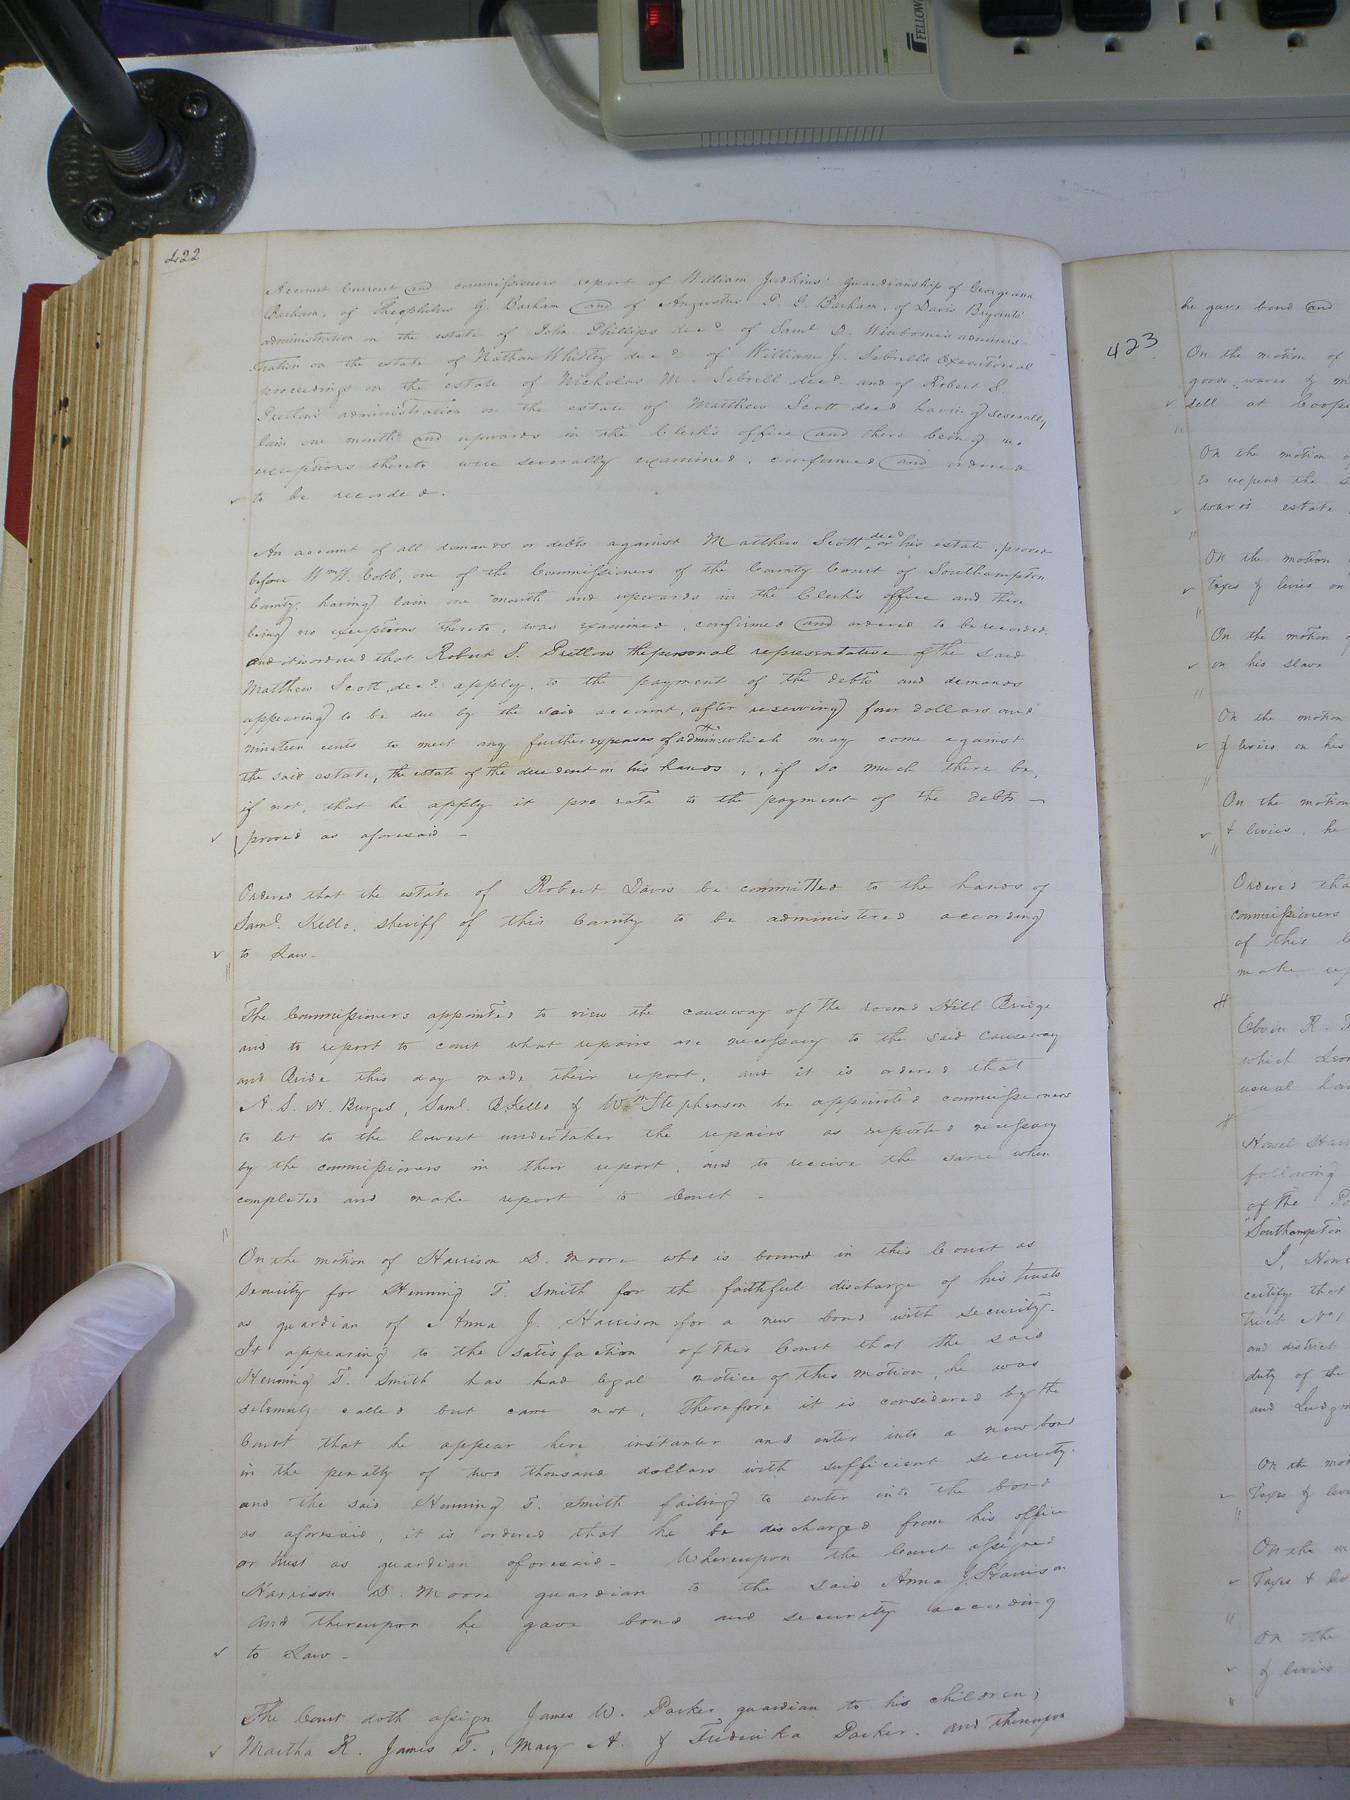 FELLOWES
422
Account Current and commissioners report of William Judkins' guardianship of Georgeana
Barham, of Theophilus G. Barham and of Augustus P. G. Barham, of Davis Bryants'
administration on the estate of John Phillips decd. of Saml. D. Winborne's adminis-
tration on the estate of Nathan Whitley decd. of William J. Sebrell's Executorial
proceedings on the estate of Nicholas M. Sebrell decd. and of Robert S.
Pretlow's administration on the estate of Matthew Scott decd having severally
lain one month and upwards in the Clerk's office and there being no
exceptions thereto were severally examined, confirmed and ordered
to be recorded.
An account of all demands or debts against Matthew Scott decd or his estate, proved
before Wm. H. Cobb, one of the Commissioners of the County Court of Southampton
County, having lain one month and upwards in the Clerk's office and there
being no exceptions thereto, was examined, confirmed and ordered to be recorded
and it is ordered that Robert S. Pretlow the personal representative of the said
Matthew Scott, decd. apply, to the payment of the debts and demands
appearing to be due by the said account, after reserving four dollars and
nineteen cents to meet any further expenses of admn. which may come against
the said estate, the estate of the decedent in his hands, if so much there be,
if not, that he apply it pro rata to the payment of the debts —
proved as aforesaid -
Ordered that the estate of Robert Davis be committed to the hands of
Saml. Kello, sheriff of this County to be administered according
to Law.
The Commissioners appointed to view the causeway of the round Hill Bridge
and to report to court what repairs are necessary to the said causeway
and Bride this day made their report, and it is ordered that
A. S. H. Burges, Saml. B. Kello & Wm Stephenson be appointed commissioners
to let to the lowest undertaker the repairs as reported necessary
by the commissioners in their report, and to receive the same when
completed and make report to Court -
On the motion of Harrison D. Moore who is bound in this Court as
security for Henning T. Smith for the faithful discharge of his trusts
as guardian of Anna J. Harrison for a new bond with security.
It appearing to the satisfaction of this Court that the said
Henning T. Smith has had legal notice of this motion, he was
solemnly called but came not, Therefore it is considered by the
Court that he appear here instanter and enter into a new bond
in the penalty of two thousand dollars with sufficient security.
and the said Henning T. Smith failing to enter into the bond
as aforesaid, it is ordered that he be discharged from his office
or trust as guardian aforesaid - Whereupon the Court assigned
Harrison D. Moore guardian to the said Anna J. Harrison
and thereupon he gave bond and security according
to Law -
The Court doth assign James W. Parker, guardian to his children;
Martha R. James T., Mary A. & Frederika Parker. and thereupon
423
he gave bond and
On the motion of
goods, wares & m
sell at Coope
On the motion of
to repend the
ward's estate
On the motion
Taxes & levies on
On the motion of
on his slave
On the motion
& levies on his
On the motion
& levies, he
Ordered tha
commissioners
of this C
make up
Elvin R.
which
usual
Howel Harr
following
of the Po
"Southampton
I, Howe
certify that
trict No 1
and district
duty of the
and
On the mot
Taxes & levi
On the m
Taxes & le
On the
& levies